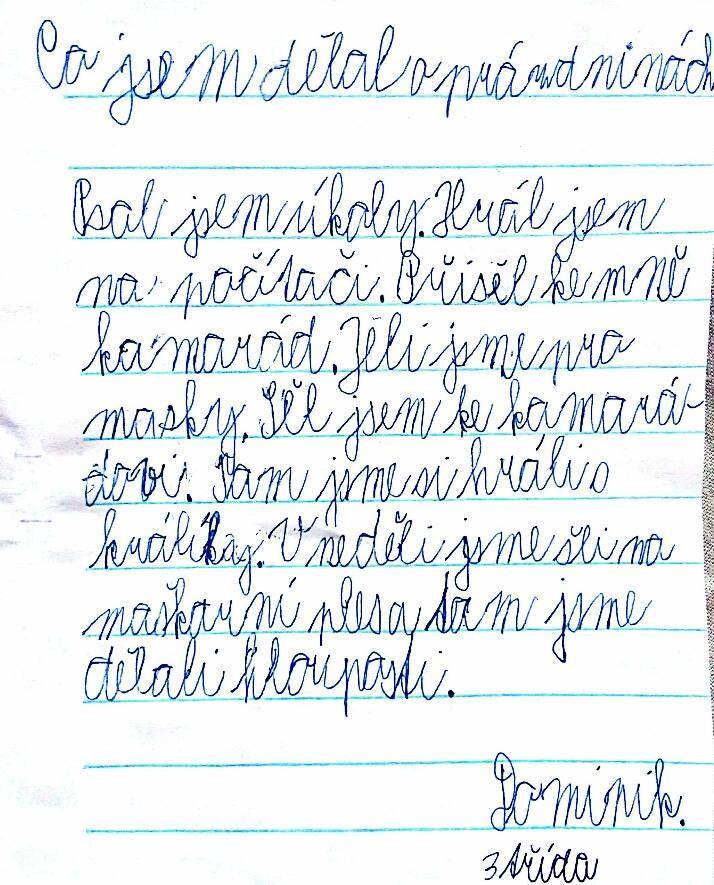 Co jsem dělal o prázdninách
Psal jsem úkoly. Hrál jsem
na počítači. Přišěl ke mně
kamarád. Jeli jsme pro
masky. Šěl jsem ke kamará-
dovi. Tam jsme si hráli s
králíkaj. V neděli jsme šli na
maškarní ples a tam jsme
dělali hlouposti.
Dominik.
3 třída